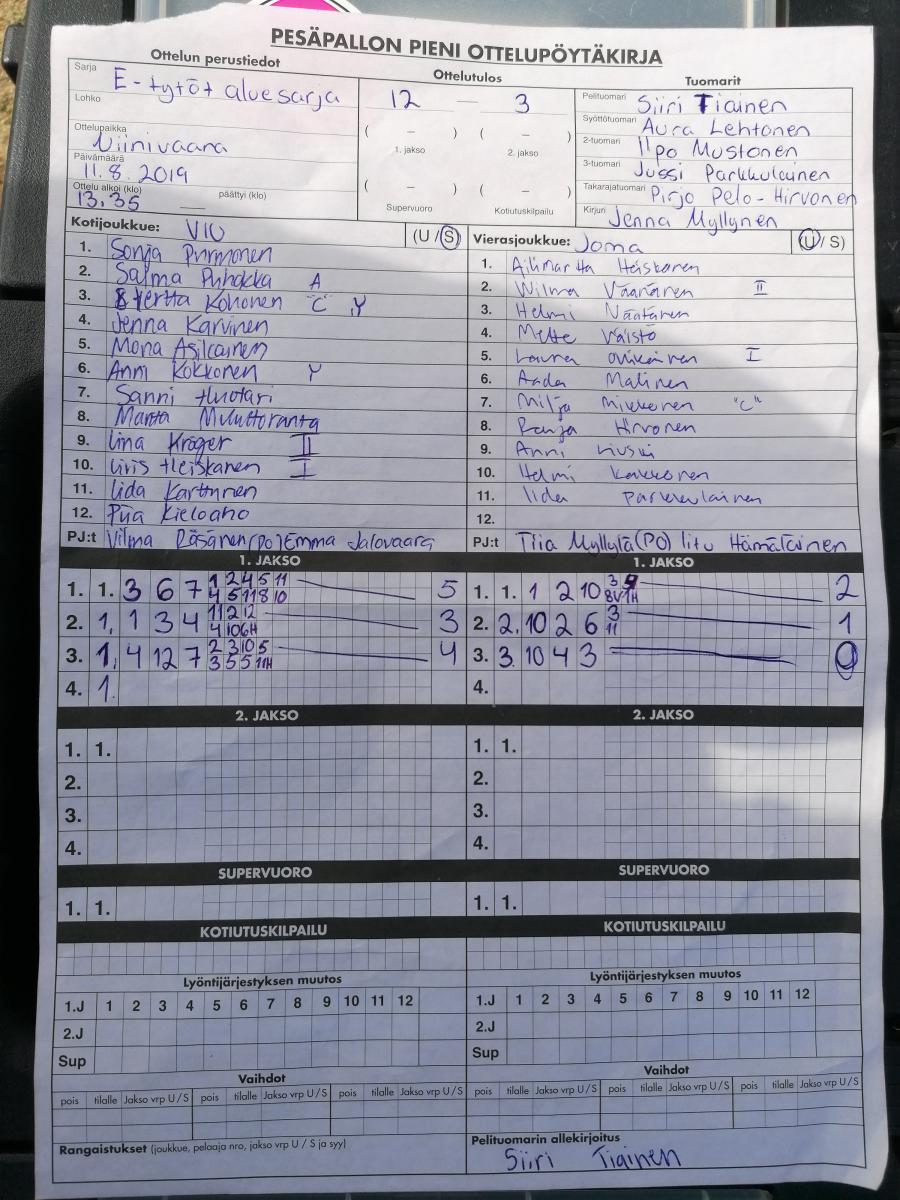 PESÄPALLON PIENI OTTELUPÖYTÄKIRJA
Ottelun perustiedot
Sarja E-tytöt aluesarja
Lohko
Ottelupaikka Niinivaara
Päivämäärä 11.8.2019
Ottelu alkoi (klo) 13.35 päättyi (klo)
Ottelutulos
12 — 3
( – ) ( – )
1. jakso 2. jakso
( – ) ( – )
Supervuoro Kotiutuskilpailu
Tuomarit
Pelituomari Siiri Tiainen
Syöttötuomari Aura Lehtonen
2-tuomari Ilpo Mustonen
3-tuomari Jussi Parkkulainen
Takarajatuomari Pirjo Pelo-Hirvonen
Kirjuri Jenna Myllynen
Kotijoukkue: ViU (U / S)
1. Sonja
2. Salma Puhakka A
3. Vertta Kohonen "C" Y
4. Jenna Karvinen
5. Mona Asikainen
6. Anni Kokkonen Y
7. Sanni Huotari
8. Martta
9. Iina Kröger II
10. Iiris Heiskanen I
11. Iida Karttunen
12. Piia Kieloaho
PJ:t Vilma Räsänen(po) Emma Jalovaara
Vierasjoukkue: Joma (U / S)
1. Heiskanen
2. Wilma Väänänen II
3. Helmi Näätänen
4. Mette Väistö
5. Laura I
6. Aada Malinen
7. Milja Mikkonen "C"
8. Ranja Hirvonen
9. Anni
10. Helmi Kakkonen
11. Iida Parkkulainen
12.
PJ:t Tiia Myllylä(PO) Iitu Hämäläinen
1. JAKSO
1. 1. 3 6 7 1 2 4 5 11 5
4 5 11 8 10
2. 1. 1 3 4 11 2 12 3
4 10 6H
3. 1. 4 12 7 2 3 10 5 4
3 5 5 11H
4. 1.
1. JAKSO
1. 1. 1 2 10 3 9 2
8V 1H
2. 2. 10 2 6 3 1
11
3. 3. 10 4 3 0
4.
2. JAKSO
1. 1.
2.
3.
4.
2. JAKSO
1. 1.
2.
3.
4.
SUPERVUORO
1. 1.
SUPERVUORO
1. 1.
KOTIUTUSKILPAILU
KOTIUTUSKILPAILU
Lyöntijärjestyksen muutos
1.J 1 2 3 4 5 6 7 8 9 10 11 12
2.J
Sup
Lyöntijärjestyksen muutos
1.J 1 2 3 4 5 6 7 8 9 10 11 12
2.J
Sup
Vaihdot
pois tilalle Jakso vrp U / S pois tilalle Jakso vrp U / S pois tilalle Jakso vrp U / S
Vaihdot
pois tilalle Jakso vrp U / S pois tilalle Jakso vrp U / S pois tilalle Jakso vrp U / S
Rangaistukset (joukkue, pelaaja nro, jakso vrp U / S ja syy)
Pelituomarin allekirjoitus
Siiri Tiainen